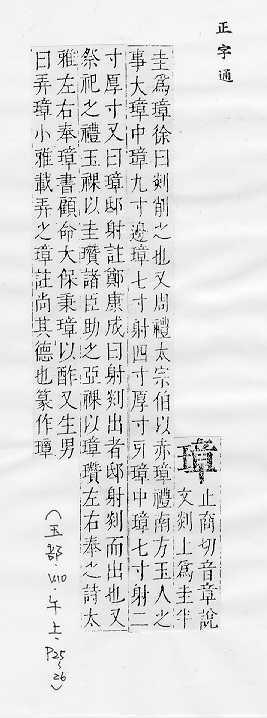 正字通
璋
止商切音章說
文剡上爲圭半
圭爲璋徐曰剡削之也又周禮太宗伯以赤璋禮南方玉人之
事大璋中璋九寸邊璋七寸射四寸厚寸牙璋中璋七寸射二
寸厚寸又曰璋邸射註鄭康成曰射剡出者邸射剡而出也又
祭祀之禮王祼以圭瓚諸臣助之亞祼以璋瓚左右奉之詩太
雅左右奉璋書顧命大保秉璋以酢又生男
曰弄璋小雅載弄之璋註尚其德也篆作璋
(玉部.V10.午上.P25~26)